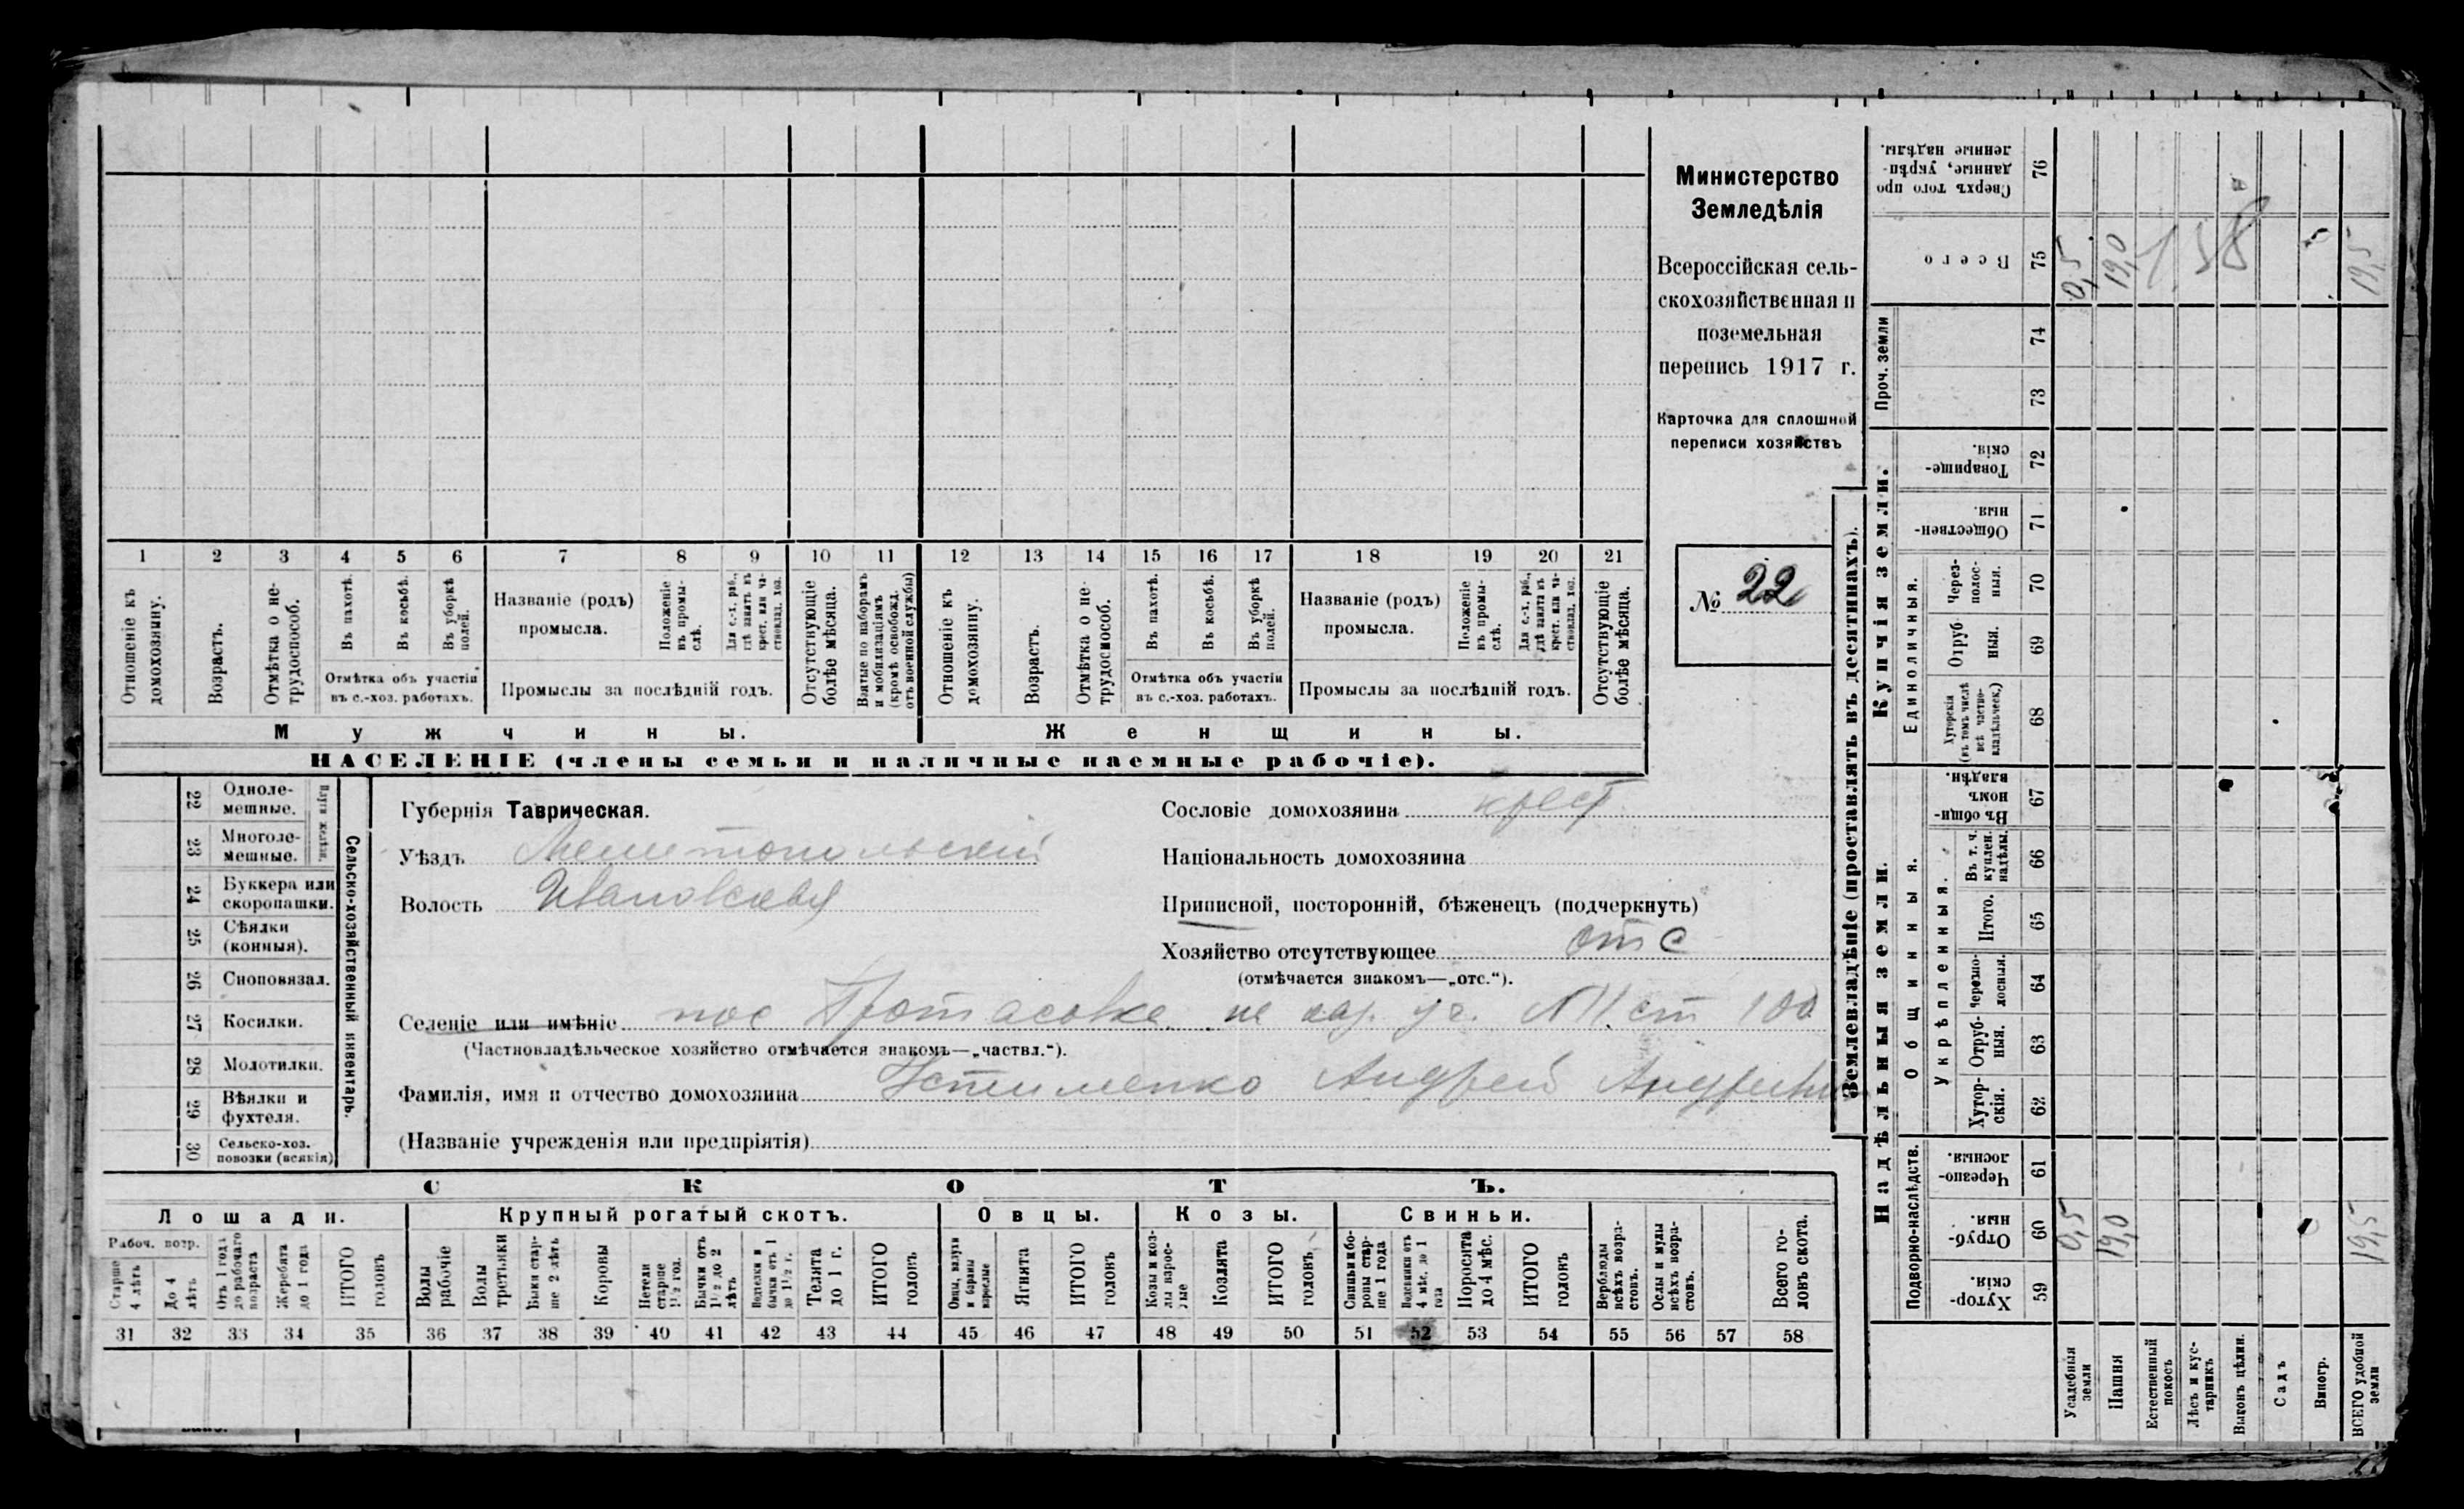 Министерство
Земледѣлія
Всероссійская сель-
скохозяйственная и
поземельная
перепись 1917 г.
Карточка для сплошной
переписи хозяйствъ
№ 22
1 2 3 4 5 6 7 8 9 10 11 12 13 14 15 16 17 18 19 20 21
Отношеніе къ домохозяину.
Возрастъ.
Отмѣтка о не-трудоспособ.
Въ пахотѣ.
Въ косьбѣ.
Въ уборкѣ полей.
Отмѣтка объ участіи
въ с.-хоз. работахъ.
Названіе (родъ)
промысла.
Положеніе въ промы-слѣ.
Для с.-х. раб., гдѣ занятъ въ крест. или ча-стновлад. хоз.
Промыслы за послѣдній годъ.
Отсутствующіе болѣе мѣсяца.
Взятые по наборамъ и мобилизаціямъ (кромѣ освобожд. отъ военной службы)
Отношеніе къ домохозяину.
Возрастъ.
Отмѣтка о не-трудоспособ.
Въ пахотѣ.
Въ косьбѣ.
Въ уборкѣ полей.
Отмѣтка объ участіи
въ с.-хоз. работахъ.
Названіе (родъ)
промысла.
Положеніе въ промы-слѣ.
Для с.-х. раб., гдѣ занята въ крест. или ча-стновлад. хоз.
Промыслы за послѣдній годъ.
Отсутствующіе болѣе мѣсяца.
Мужчины.
Женщины.
НАСЕЛЕНІЕ (члены семьи и наличные наемные рабочіе).
Сельско-хозяйственный инвентарь.
Плуги желѣзн.
22 Одноле-мешные.
23 Многоле-мешные.
24 Буккера или скоропашки.
25 Сѣялки (конныя).
26 Сноповязал.
27 Косилки.
28 Молотилки.
29 Вѣялки и фухтеля.
30 Сельско-хоз. повозки (всякія)
Губернія Таврическая.
Уѣздъ Мелитопольскій
Волость Ивановская
Сословіе домохозяина крест
Національность домохозяина
Приписной, посторонній, бѣженецъ (подчеркнуть)
Хозяйство отсутствующее отс
(отмѣчается знакомъ—„отс.“).
Селеніе или имѣніе пос Протасовка на каз. уч. N 11 ст 100
(Частновладѣльческое хозяйство отмѣчается знакомъ—„частвл.“).
Фамилія, имя и отчество домохозяина Устименко Андрей
(Названіе учрежденія или предпріятія)
СКОТЪ.
Лошади.
Рабоч. возр.
Старше 4 лѣтъ 31
До 4 лѣтъ 32
Отъ 1 года до рабочаго возраста 33
Жеребята до 1 года 34
ИТОГО головъ 35
Крупный рогатый скотъ.
Волы рабочіе 36
Волы третьяки 37
Быки стар-ше 2 лѣтъ 38
Коровы 39
Нетели старше 1½ год. 40
Бычки отъ 1½ до 2 лѣтъ 41
Подтелки и бычки отъ 1 до 1½ г. 42
Телята до 1 г. 43
ИТОГО головъ 44
Овцы.
Овцы, валухи и бараны взрослые 45
Ягнята 46
ИТОГО головъ 47
Козы.
Козы и коз-лы взрос-лые 48
Козлята 49
ИТОГО головъ 50
Свиньи.
Свиньи и бо-ровы стар-ше 1 года 51
Подсвинки отъ 4 мѣс. до 1 года 52
Поросята до 4 мѣс. 53
ИТОГО головъ 54
Верблюды всѣхъ возра-стовъ. 55
Ослы и мулы всѣхъ возра-стовъ. 56
57
Всего го-ловъ скота. 58
Землевладѣніе (проставлять въ десятинахъ).
Надѣльныя земли.
Подворно-наслѣдств.
Хутор-скія 59
Отруб-ныя 60 0,5 19,0 19,5
Черезпо-лосныя. 61
Общинныя.
Укрѣпленныя.
Хутор-скія. 62
Отруб-ныя. 63
Черезпо-лосныя. 64
Итого. 65
Въ т. ч. куплен. надѣлы. 66
Въ общи-номъ владѣн. 67
Купчія земли.
Единоличныя.
Хуторскія (въ томъ числѣ всѣ частно-владѣльческ.) 68
Отруб-ныя. 69
Через-полос-ныя. 70
Обществен-ныя. 71
Товарище-скія. 72
Проч. земли
73 74
Всего 75 0,5 19,0 158 19,5
Сверхъ того про данные, укрѣп-ленные надѣлы. 76
Усадебныя земли
Пашня
Естественный покосъ
Лѣсъ и кус-тарникъ
Выгонъ цѣлин.
Садъ
Виногр.
ВСЕГО удобной земли